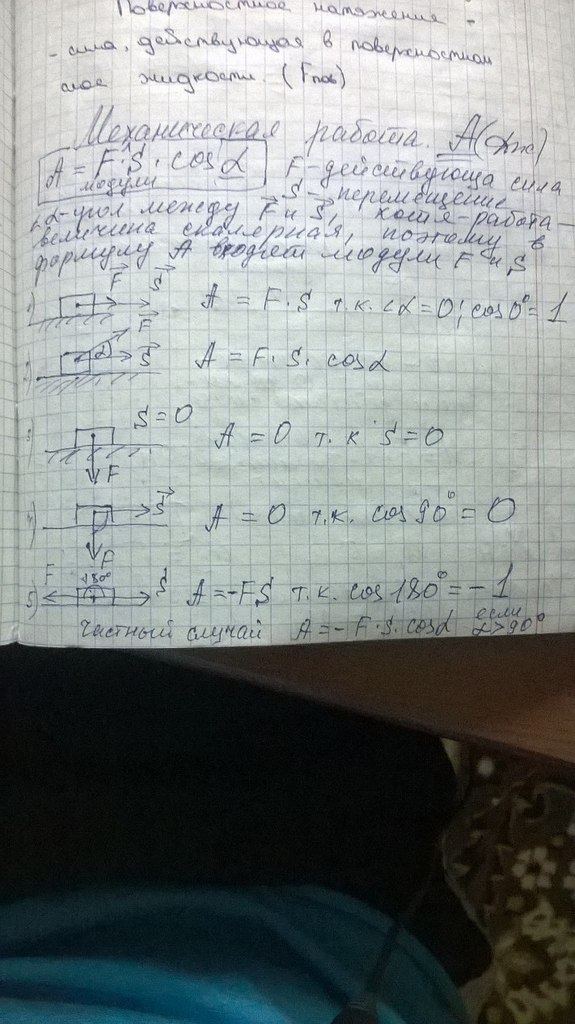 Поверхностное натяжение -
- сила, действующая в поверхностном
слое жидкости. (Fпов)
Механическая работа. A(Дж)
A = F·S·cosα F-действующа сила
модули S - перемещение
<α-угол между F и S, работа-
величина скалерная, поэтому в
формулу A входят модули F и S
1) F S A = F·S т.к. <α=0; cos0°=1
2) F α S A = F·S·cosα
3 S=0 F A = 0 т.к S=0
4) S F A = 0 т.к. cos90°=0
5) F 180° S A=-FS т.к. cos180°=-1
Частный случай A=-F·S·cosα если α>90°